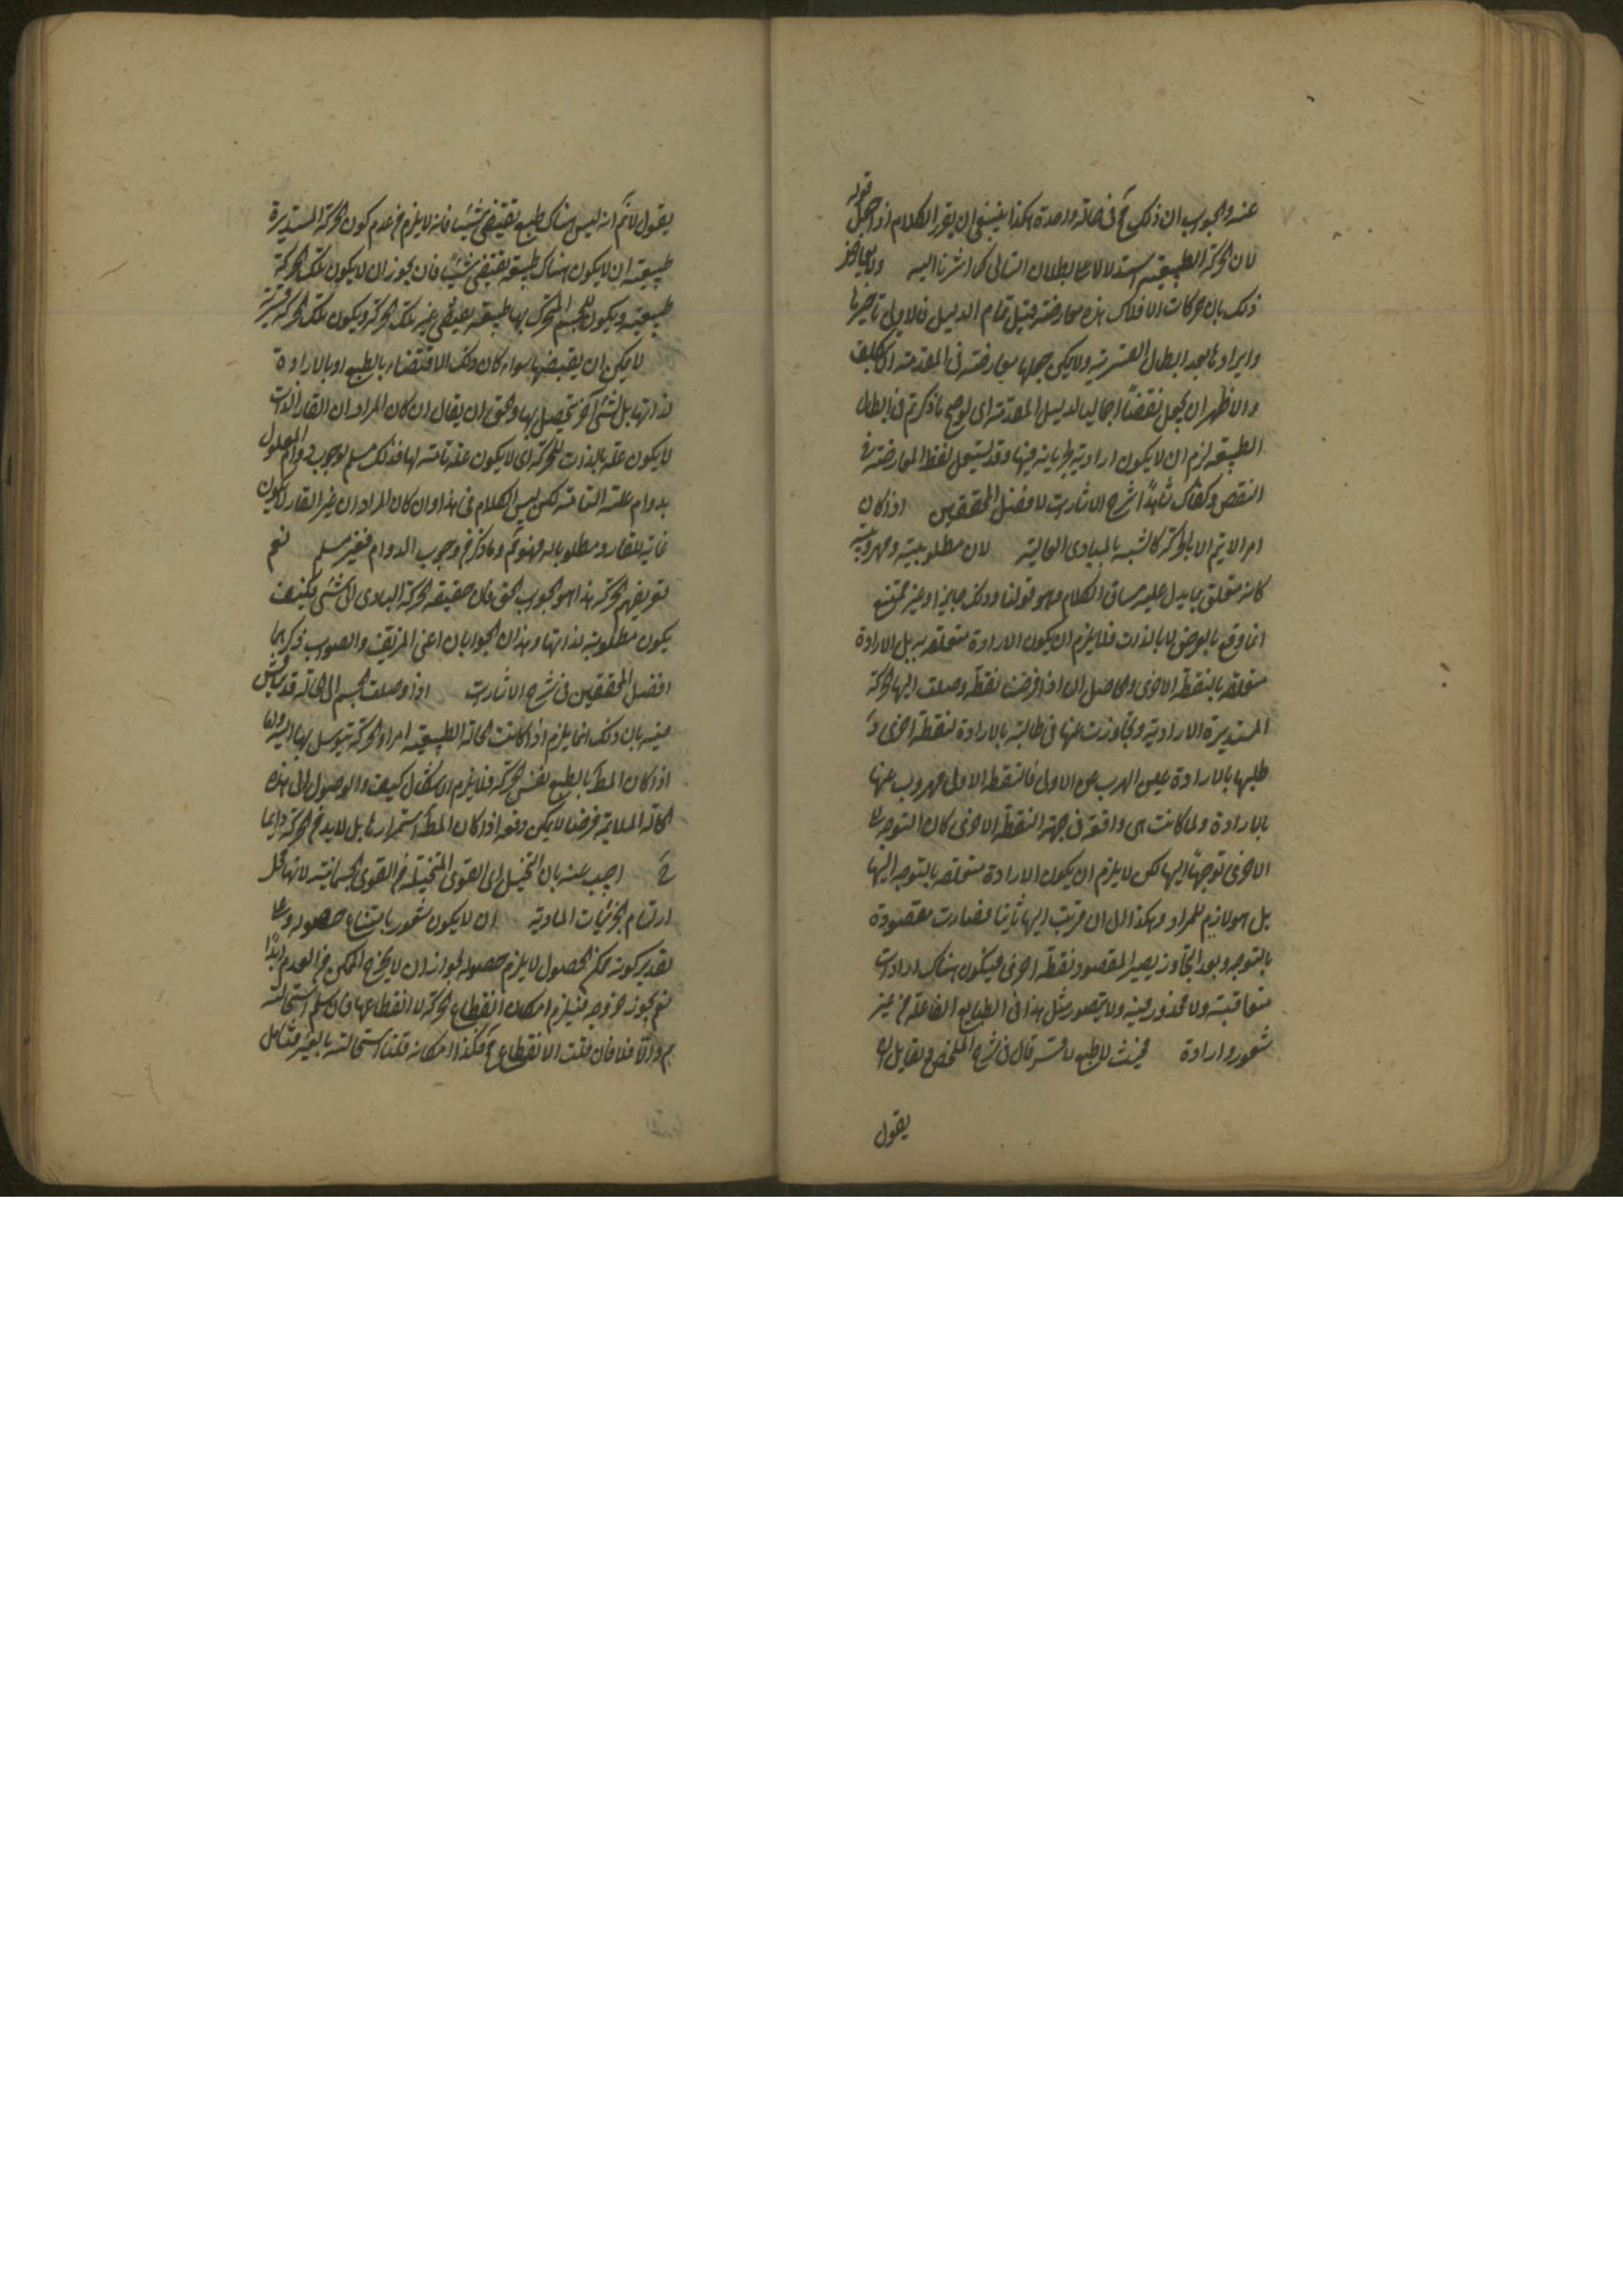 عنه والجواب ان ذلك مح في حالة واحدة هكذا ينبغي ان يقرر الكلام اذ اجعل قوله
لان الحركة الطبيعية استدلالا على بطلان التالي كما اشرنا اليه
ذلك بان حركات الافلاك هذه معارضة قبل تمام الدليل فالاولى تاخيرها
وايرادها بعد ابطال القسرية ولا يمكن جعلها معارضة في المقدمة
والاظهر ان يجعل نقضا اجماليا لدليل المقدمة اى لو صح ما ذكرتم في ابطال
الطبيعية لزم ان لا يكون ارادية لجريانه فيها وقد يستعمل لفظ المعارضة في
النقض وكفاك شاهدا شرح الاشارات لافضل المحققين اذا كان
امرا لا يتم الا بالحركة كالتشبه بالمبادى العالية لان مطلوبيته ومهروبيته
كانه متعلق بما يدل عليه مساق الكلام وهو قولنا وذلك جايز او غير ممتنع
انما وقع بالعرض لا بالذات فلا يلزم ان يكون الارادة متعلقة به بل الارادة
متعلقة بالنقطة الاخرى والحاصل ان اذا فرضت نقطة وصلت اليها الحركة
المستديرة الارادية وتجاوزت عنها فهي طالبة بالارادة لنقطة اخرى و
طلبها بالارادة عين الهرب عن الاولى فالنقطة الاولى مهروب عنها
بالارادة ولما كانت هى واقعة في جهة النقطة الاخرى كان التوجه الى
الاخرى توجها اليها لكن لا يلزم ان يكون الارادة متعلقة بالتوجه اليها
بل هو لازم للمراد وهكذا الى ان قربت اليها ثانيا فصارت مقصودة
بالتوجه وبعد التجاوز يصير المقصود نقطة اخرى فيكون هناك ارادات
متعاقبة ولا محذور فيه ولا يتصور مثل هذا في الطبايع الفاعلة من غير
شعور وارادة فحيث لا طبع لا قسر قال في شرح الملخص ولقايل ان
يقول
يقول لا نم انه ليس هناك طبع يقتضى شيئا فانه لا يلزم من عدم كون الحركة المستديرة
طبيعية ان لا يكون هناك طبيعة يقتضى شيئا فان يجوز ان لا يكون تلك الحركة
طبيعية ويكون للجسم المتحرك بها طبيعة يقتضى غير تلك الحركة ويكون تلك الحركة قسرية
لا يمكن ان يقتضيها سواء كان ذلك الاقتضاء بالطبع او بالارادة
لذاتها بل لشئ آخر يتحصل بها والحق ان يقال ان كان المراد ان القار الذات
لا يكون علة بالذات للحركة اى لا يكون علة تامة لها فذلك مسلم لوجوب دوام المعلول
بدوام علته التامة لكن ليس الكلام في هذا وان كان المراد ان غير القار لا يكون
غاية للقار ومطلوبا له فهو مم وما ذكر من وجوب الدوام فغير مسلم نعم
تعريفهم الحركة هذا هو الجواب الحق فان حقيقة الحركة التادى الى شئ فكيف
يكون مطلوبية لذاتها وهذان الجوابان اعنى المزيف والصواب ذكرهما
افضل المحققين في شرح الاشارات اذا وصلت الجسم الى الحالة قد يناقش
فيه بان ذلك انما يلزم اذا كانت الحالة الطبيعية امرا والحركة يتوسل بها اليه واما
اذا كان المط بالطبع نفس الحركة فلا يلزم الاشكال كيف والوصول الى هذه
الحالة الملايمة فرضا لا يمكن دفعه اذا كان المط استمرارها بل لا بد من الحركة دايما
اجيب عنه بان التخيل اى القوى المتخيلة من القوى الجسمانية لانها محل
ارتسام الجزئيات المادية ان لا يكون شعور بامتناع حصوله وعلى
تقدير كونه ممكن الحصول لا يلزم حصوله لجواز ان لا يخرج الممكن من العدم ابدا
نعم يجوز خروجه فيلزم امكان انقطاع الحركة لا انقطاعها فان سلم استحالته
تم والا فلا فان قلت الانقطاع مح فكذا امكانه قلنا استحالته بالغير فتامل